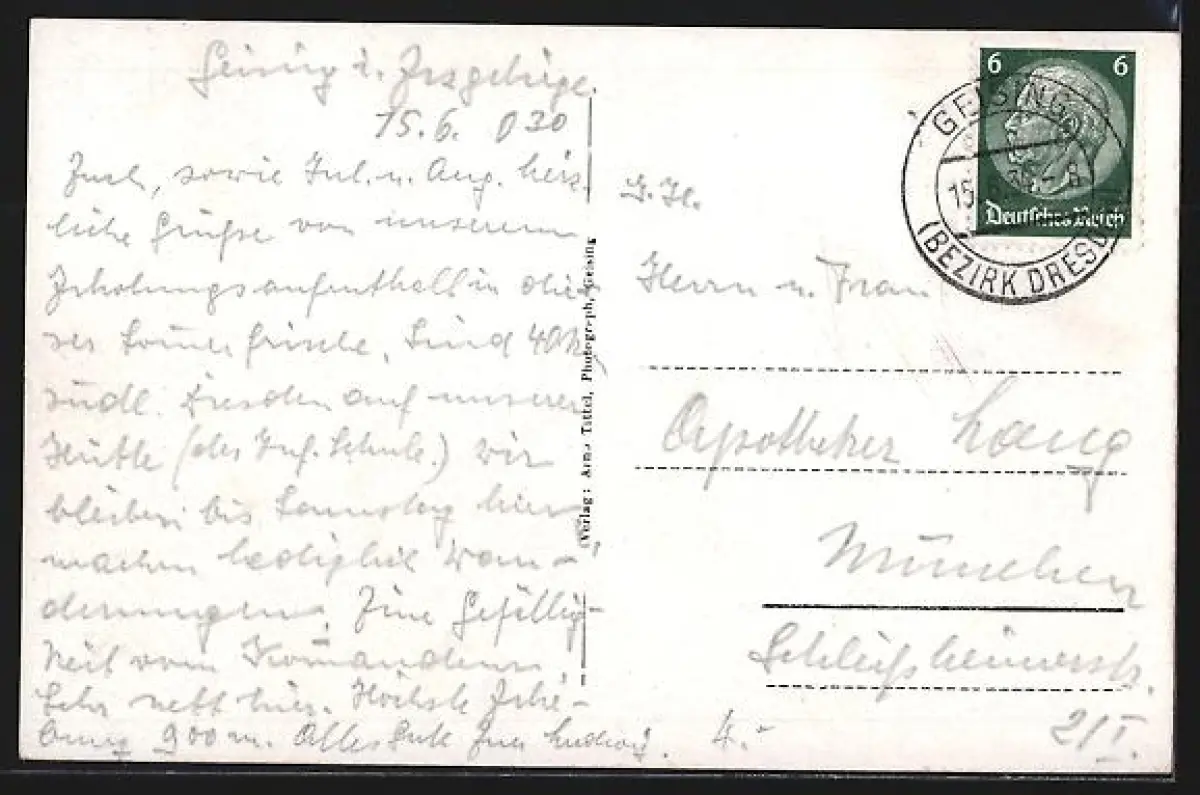 Geising i. Erzgebirge.
15.6. 030
Euch, sowie Jul. u. Aug. herz-
liche Grüsse von unserem
Erholungsaufenthalt in die-
ser Somerfrische. Sind 40 k
südl. Dresden auf unserer
Hütte (der Inf. Schule.) Wir
bleiben bis Samstag hier
machen lediglich Wan-
derungen. Eine Gefällig-
keit vom Komandeur.
Sehr nett hier. Höchste Erhe-
bung 900 m. Alles Gute Euer Ludwig.
(Verlag: Arno Tittel, Photograph, Geising
6 6
Deutsches Reich
GEISING
15. 6. 8
(BEZIRK DRESD
Herrn u. Frau
Apotheker Lang
München
Schleißheimerstr.
2/I.
4.-